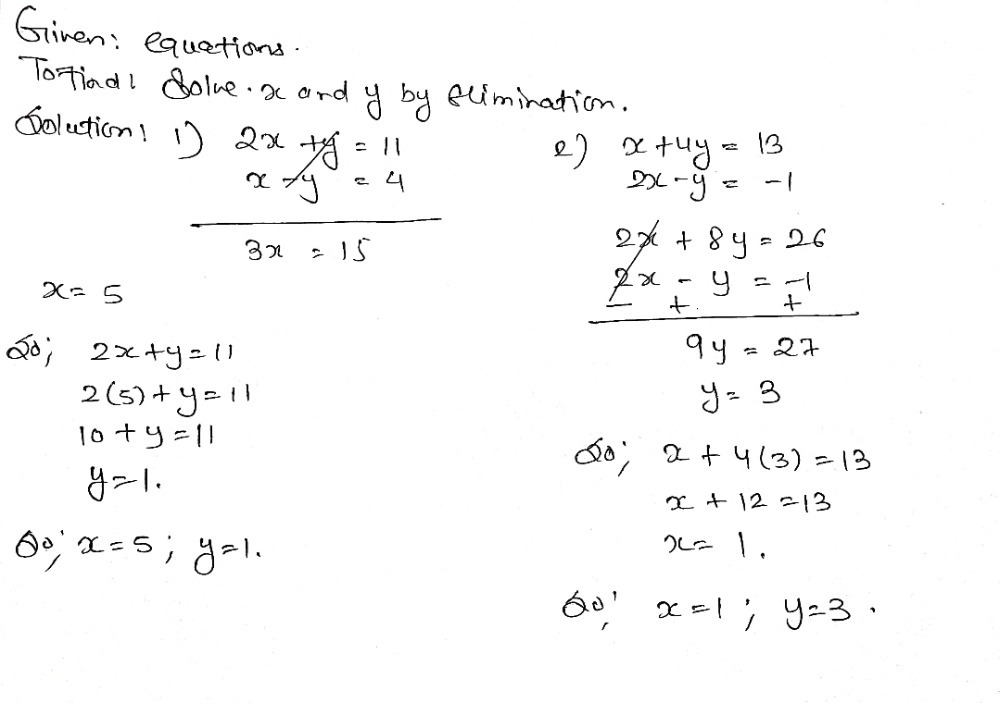 Given: equations.
To find: Solve. x and y by elimination.
Solution: 1) 2x + y = 11
x - y = 4
3x = 15
x = 5
So; 2x + y = 11
2(5) + y = 11
10 + y = 11
y = 1.
So; x = 5; y = 1.
2) x + 4y = 13
2x - y = -1
2x + 8y = 26
2x - y = -1
- + +
9y = 27
y = 3
So; x + 4(3) = 13
x + 12 = 13
x = 1.
So; x = 1; y = 3.